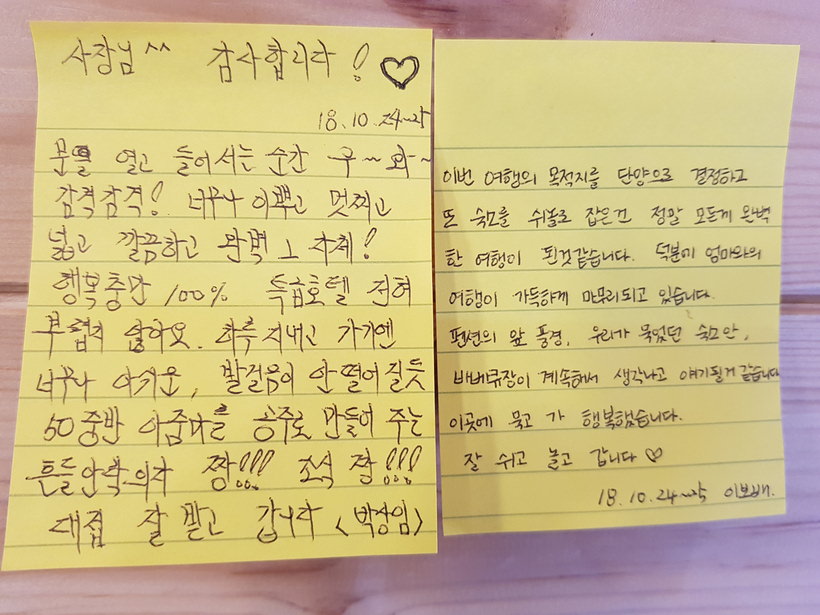 사장님 ^^ 감사합니다! ♡
18.10.24~25
문을 열고 들어서는 순간 우~와~
감격감격! 너무나 이쁘고 멋찌고
넓고 깔끔하고 완벽 그 자체!
행복충만 100% 특급호텔 전혀
부럽지 않아요. 하루 지내고 가기엔
너무나 아쉬운, 발걸음이 안 떨어질듯
50중반 아줌마를 공주로 만들어 주는
흔들안락의자 짱!!! 조식 짱!!!
대접 잘 받고 갑니다 <박상임>
이번 여행의 목적지를 단양으로 결정하고
또 숙소를 쉬놀로 잡은건 정말 모든게 완벽
한 여행이 된것같습니다. 덕분에 엄마와의
여행이 가득하게 마무리되고 있습니다.
펜션의 앞 풍경, 우리가 묵었던 숙소안,
바베큐장이 계속해서 생각나고 얘기될거 같습니다
이곳에 묵고 가 행복했습니다.
잘 쉬고 놀고 갑니다 ♡
18.10.24~25 이보배.